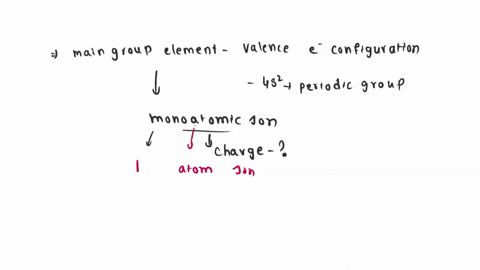 ⇒ main group element - valence e⁻ configuration
- 4s² → periodic group
monoatomic Ion
charge - ?
1 atom Ion